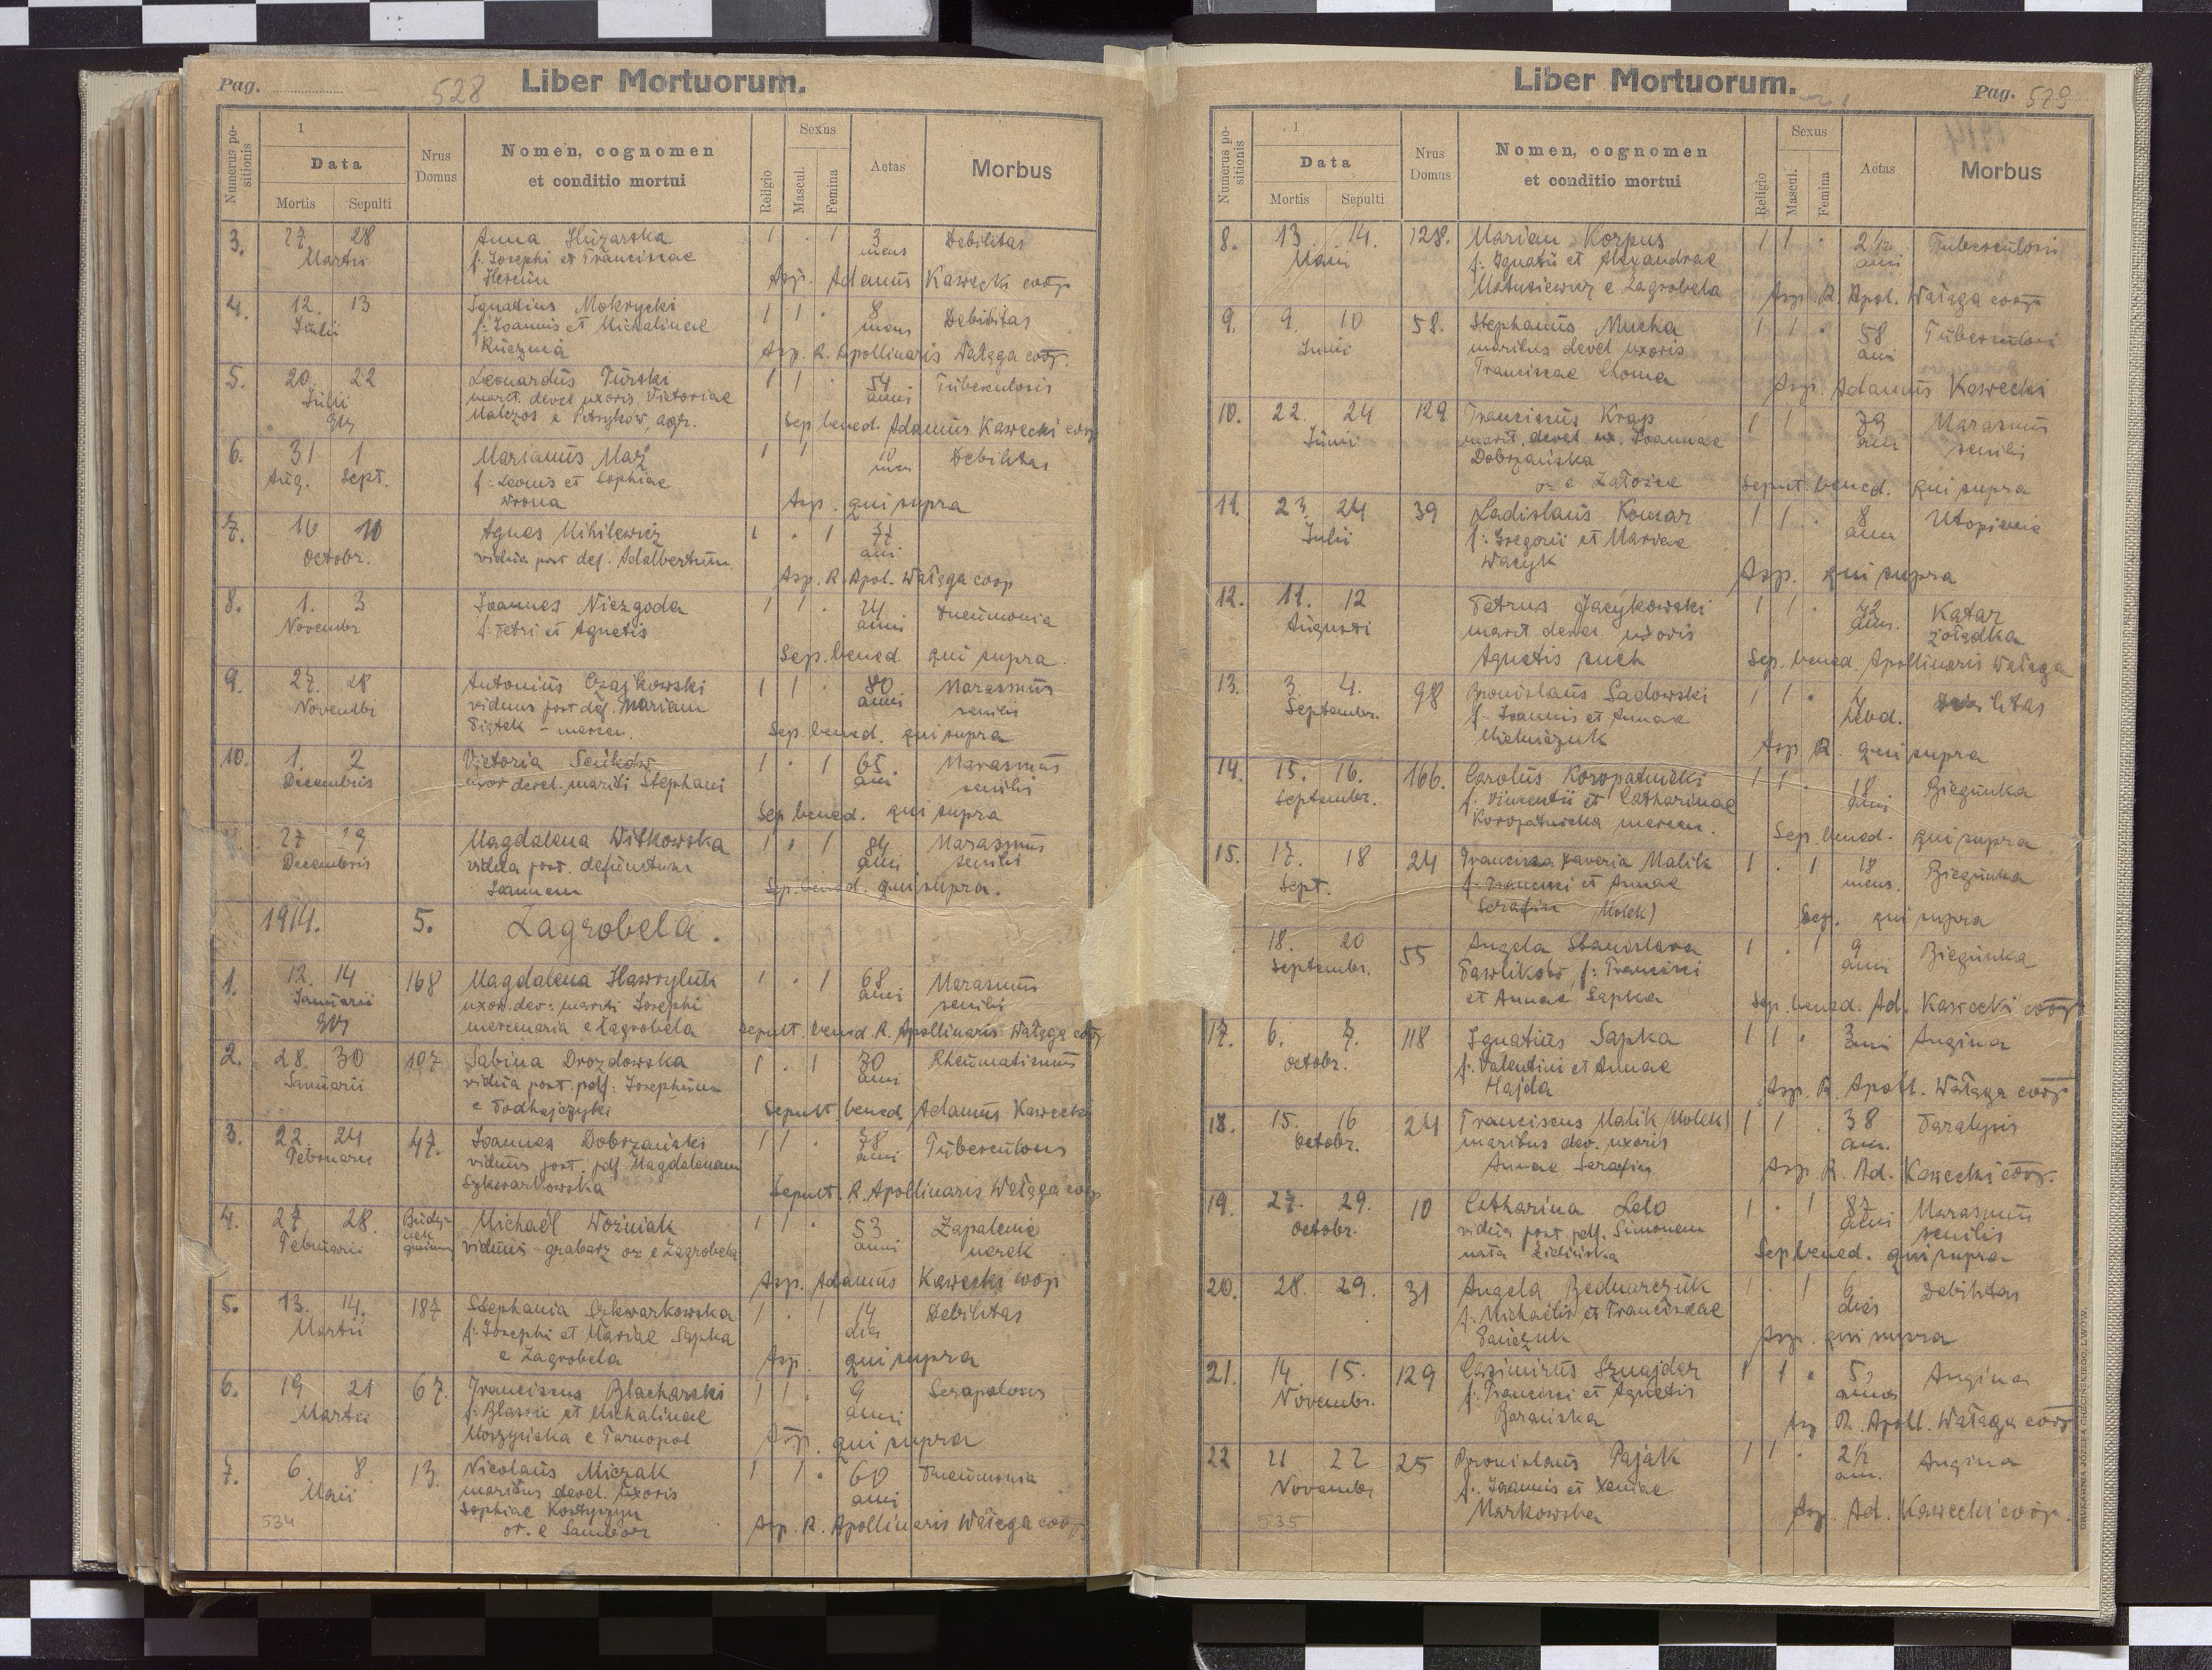 Pag. 528 Liber Mortuorum.
Numerus positionis
1
Data
Mortis Sepulti
Nrus Domus
Nomen, cognomen
et conditio mortui
Religio
Sexus
Mascul. Femina
Aetas
Morbus
3. 27 28 Anna Huzarska 1 . 1 3 Debilitas
Martii f. Josephi et Franciscae mens
Asp. Adamus Kawecki coop
4. 12. 13 Ignatius Mokrycki 1 1 . 8 Debilitas
Julii f: Joannis et Michalinae mens
Kuczma Asp. R. Apollinaris Wałęga coop.
5. 20. 22 Leonardus Turski 1 1 . 54 Tuberculosis
Julii marit. devel uxoris Victoriae anni
Malczos e Petryków, agr. Sep. bened. Adamus Kawecki coop
6. 31 1 Marianus Maź 1 1 10 Debilitas
Aug. Sept. f: Leonis et Sophiae men
Wrona Asp. qui supra
7. 10 Agnes Mihilewicz 1 . 1 77
Octobr. vidua post def. Adalbertum ani
Asp. R. Apol. Wałęga coop
8. 1. 3 Joannes Niezgoda 1 1 . 24 Pneumonia
Novembr f: Petri et Agnetis anni
Sep. bened. qui supra.
9. 27. 28 Antonius Czajkowski 1 1 . 80 Marasmus
Novembr viduus post def. Mariam anni senilis
Piątek - mercen. Sep. bened. qui supra
10. 1. 2 Victoria Seńków 1 . 1 65. Marasmus
Decembris uxor devel. mariti Stephani ani senilis
Sep. bened. qui supra
27 29 Magdalena Witkowska 1 . 1 84 Marasmus
Decembris vidua post. defunctum anni senilis
Joannem Sep. bened. qui supra.
1914. 5. Zagrobela.
1. 12. 14 168 Magdalena Hawryluk 1 . 1 68 Marasmus
Januarii uxor. dev: mariti Josephi anni senilis
mercenaria e Zagrobela Sepult. bened. R. Apollinaris Wałęga coop
2. 28. 30 107 Sabina Drozdowska 1 . 1 70 Rheumatismus
Januarii vidua post. pdf: Josephum anni
e Podhajczyki Sepult bened. Adamus Kawecki
3. 22. 24 47. Joannes Dobrzański 1 1 . 78 Tuberculosis
Februarii viduus post. pdf. Magdalenam anni
Szkwarkowska Sepult. R. Apollinaris Wałęga coop
4. 27. 28. Budynek gminny Michaël Woźniak 1 1 . 53 Zapalenie
Februarii viduus - grabarz or. e Zagrobela anni nerek
Asp. Adamus Kawecki coop
5. 13. 14. 187 Stephania Szkwarkowska 1 . 1 14 Debilitas
Martii f: Josephi et Mariae Sapka dies
e Zagrobela Asp. qui supra
6. 19 21 67. Franciscus Blacharski 1 1 . 9
Martii f: Blasii et Michalinae anni
Moszyńska e Tarnopol Asp. qui supra
7. 6. 8. 13. Nicolaus Miczak 1 1 . 60 Pneumonia
Maii maritus devel. uxoris anni
Sophiae Kostyszyn
or. e Sambor Asp. R. Apollinaris Wałęga coop
534
Liber Mortuorum. Pag. 529
1914
Numerus positionis
1
Data
Mortis Sepulti
Nrus Domus
Nomen, cognomen
et conditio mortui
Religio
Sexus
Mascul. Femina
Aetas
Morbus
8. 13. 14. 128. Marian Korpus 1 1 . 2½ Tuberculosis
Maii f: Ignatii et Alexandrae anni
Matusiewicz e Zagrobela Asp. R. Apol. Wałęga coop
9. 9. 10 58. Stephanus Mucha 1 1 . 58 Tuberculosi
Junii maritus devel uxoris anni
Franciscae Choma Asp. Adamus Kawecki
10. 22. 24 129 Franciscus Krap 1 1 . 79 Marasmus
Junii marit. devel. ux. Joannae anni senilis
Dobrzańska
or e Załoźce Sepult. bened. qui supra
11. 23. 24 39 Ladislaus Komar 1 1 . 8 Utopienie
Julii f: Gregorii et Mariae anni
Wacyk Asp. qui supra
12. 11. 12 Petrus Jacykowski 1 1 . 72 Katar
Augusti marit devel uxoris ann. żołądka
Agnetis Puch Sep. bened. Apollinaris Wałęga
13. 3. 4. 98 Bronislaus Sadowski 1 1 . Debilitas
Septembr. f: Joannis et Annae hebd.
Mielniczuk Asp. R. qui supra
14. 15. 16. 166. Carolus Koropatnicki 1 1 . 18 Biegunka
Septembr. f. Vincentii et Catharinae anni
Koropatnicka mercen. Sep. bened. qui supra
15. 17. 18 24 Francisca Xaveria Malik 1 . 1 18 Biegunka
Sept. f: Francisci et Annae mens.
Serafin Molek) Sep. qui supra
18. 20 55 Angela Stanislava 1 . 1 9 Biegunka
Septembr. Pawlików, f: Francisci anni
et Annae Sapka Sep. bened. Ad. Kawecki coop
17. 6. 7. 118 Ignatius Sapka 1 1 . 3 Angina
Octobr. f: Valentini et Annae anni
Hajda Asp. R. Apoll. Wałęga coop
18. 15. 16 24 Franciscus Malik (Molek) 1 1 . 38 Paralysis
Octobr. maritus dev. uxoris ann.
Annae Serafin Asp. R. Ad. Kawecki coop.
19. 27. 29. 10 Catharina Lelo 1 . 1 87 Marasmus
Octobr. vidua post. pdf. Simonem anni senilis
nata Zielińska Sep. bened. qui supra
20. 28. 29. 31 Angela Bednarczuk 1 . 1 6 Debilitas
f: Michaëlis et Franciscae dies
Asp. qui supra
21. 14. 15. 129 Casimirus Sznajder 1 1 . 5 Angina
Novembr. f: Francisci et Agnetis annos
Barańska Asp. R. Apoll. Wałęga coop
22 21 22 25 Bronislaus Pająk 1 1 . 2½ Angina
Novembr f: Joannis et Xeniae ann.
Markowska Asp. Ad. Kawecki coop.
535
DRUKARNIA JÓZEFA CHĘCIŃSKIEGO, LWÓW.